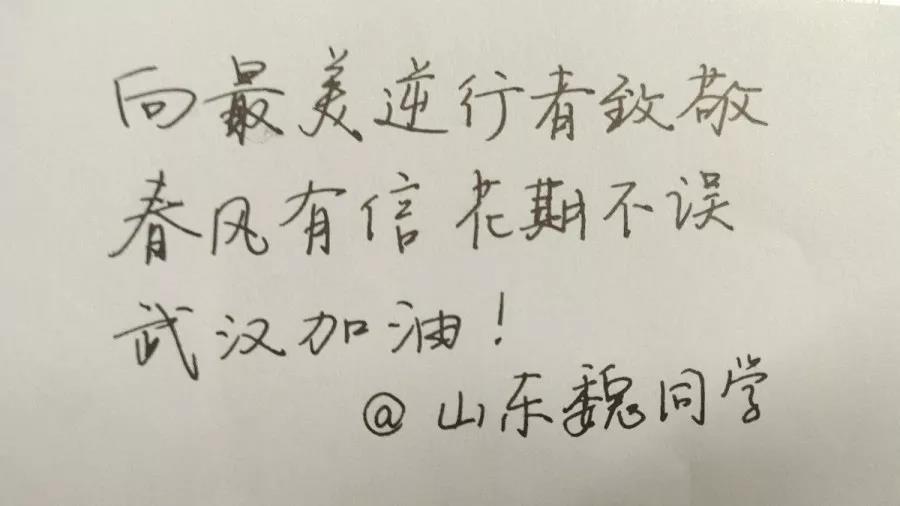 向最美逆行者致敬
春风有信 花期不误
武汉加油！
@山东魏同学